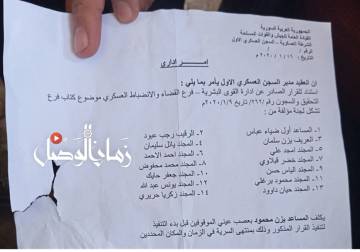 الجمهورية العربية السورية
القيادة العامة للجيش والقوات المسلحة
الشرطة العسكرية – السجن العسكري الاول
الرقم /
التاريخ : ٢٠٢٠/١/١٦
امـــر اداري
إن العقيد مدير السجن العسكري الاول يأمر بما يلي :
استناد للقرار الصادر عن ادارة القوى البشرية – فرع القضاء والانضباط العسكري موضوع كتاب فرع
التحقيق والسجون رقم /٢٦٢/ تاريخ ٢٠٢٠/١/٩م
تشكل لجنة مؤلفة من :
١- المساعد أول ضياء عباس
٢- العريف يزن سلمان
٣- المجند امجد علي
٤- المجند خضر قيلاوي
٥- المجند الياس حسن
١٢- المجند محمود برغلي
١٣- المجند حيان داوود
١٤- الرقيب رجب عبود
٢- المجند باتل سليمان
٦- المجند احمد الاحمد
٨- المجند محمد محفوض
١٠- المجند جعفر حايك
١١- المجند يونس عبد الله
١٣- المجند زكريا حريري
يكلف المساعد يزن محمود بعصب عيني الموقوفين قبل بدء التنفيذ
لتنفيذ القرار المذكور وذلك بمنتهى السرية في الزمان والمكان المحددين
زمان الوصل